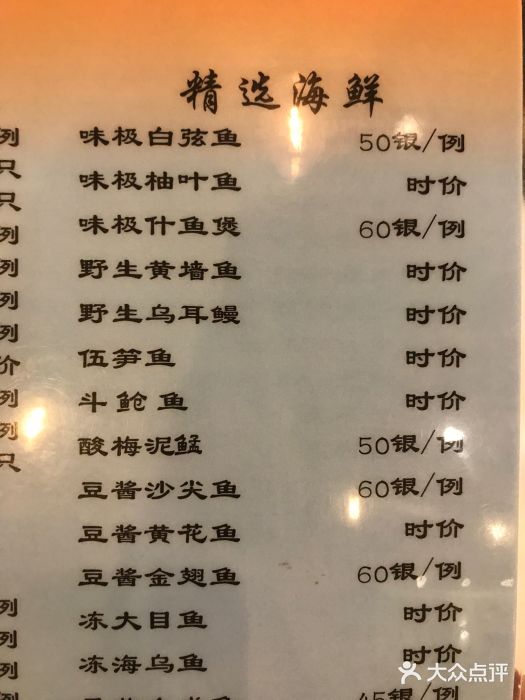 精选海鲜
味极白弦鱼 50银/例
味极柚叶鱼 时价
味极什鱼煲 60银/例
野生黄墙鱼 时价
野生乌耳鳗 时价
伍笋鱼 时价
斗鲳鱼 时价
酸梅泥鯭 50银/例
豆酱沙尖鱼 60银/例
豆酱黄花鱼 时价
豆酱金翅鱼 60银/例
冻大目鱼 时价
冻海乌鱼 时价
45银/例
例
只
只
例
例
例
例
价
例
例
只
例
例
例
大众点评